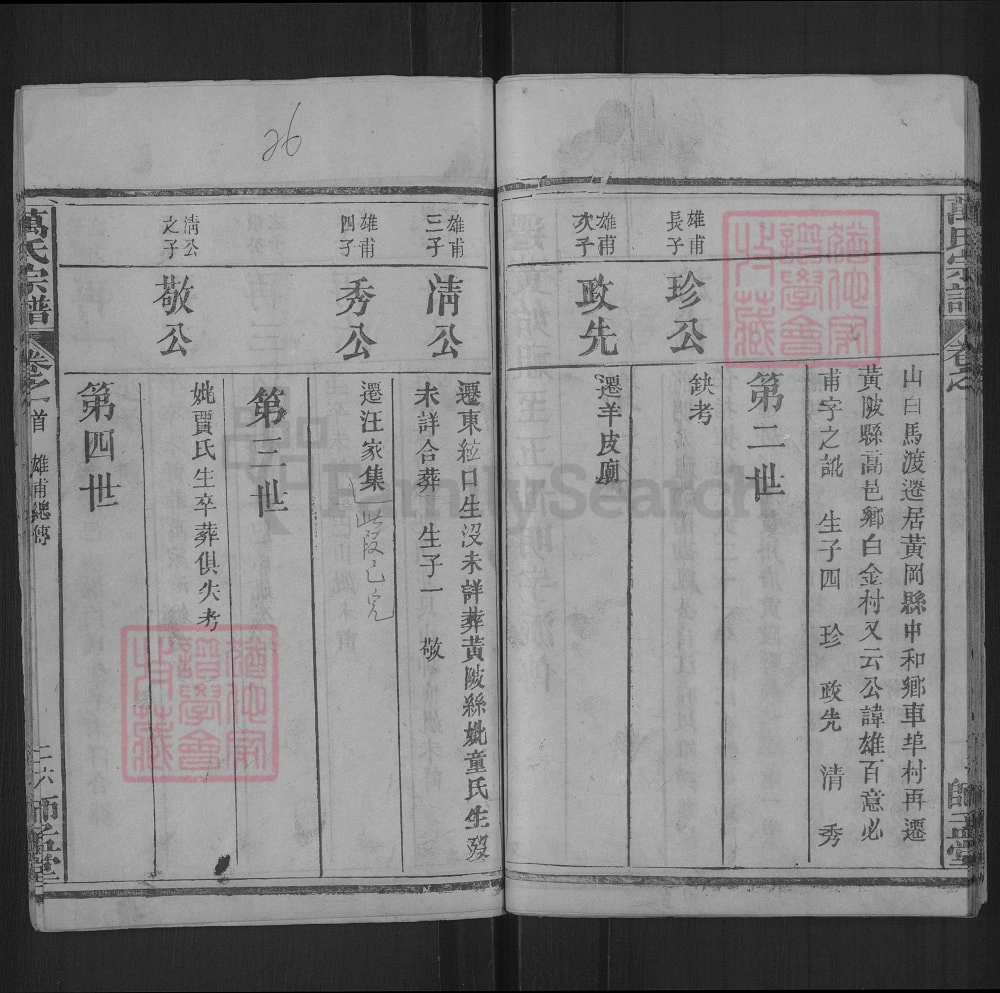 萬氏宗譜
卷之
師孟堂
山白馬渡遷居黃岡縣中和鄉車埠村再遷
黃陂縣高邑鄉白金村又云公諱雄百意必
甫字之訛 生子四 珍 政先 清 秀
第二世
雄甫長子
珍公
缺考
雄甫次子
政先
遷羊皮廟
雄甫三子
清公
遷東𥿄口生沒未詳葬黃陂縣妣童氏生歿
未詳合葬 生子一 敬
雄甫四子
秀公
遷汪家集
第三世
清公之子
敬公
妣賈氏生卒葬俱失考
第四世
萬氏宗譜
卷之一首 雄甫總傳
二六
師孟堂
26
FamilySearch